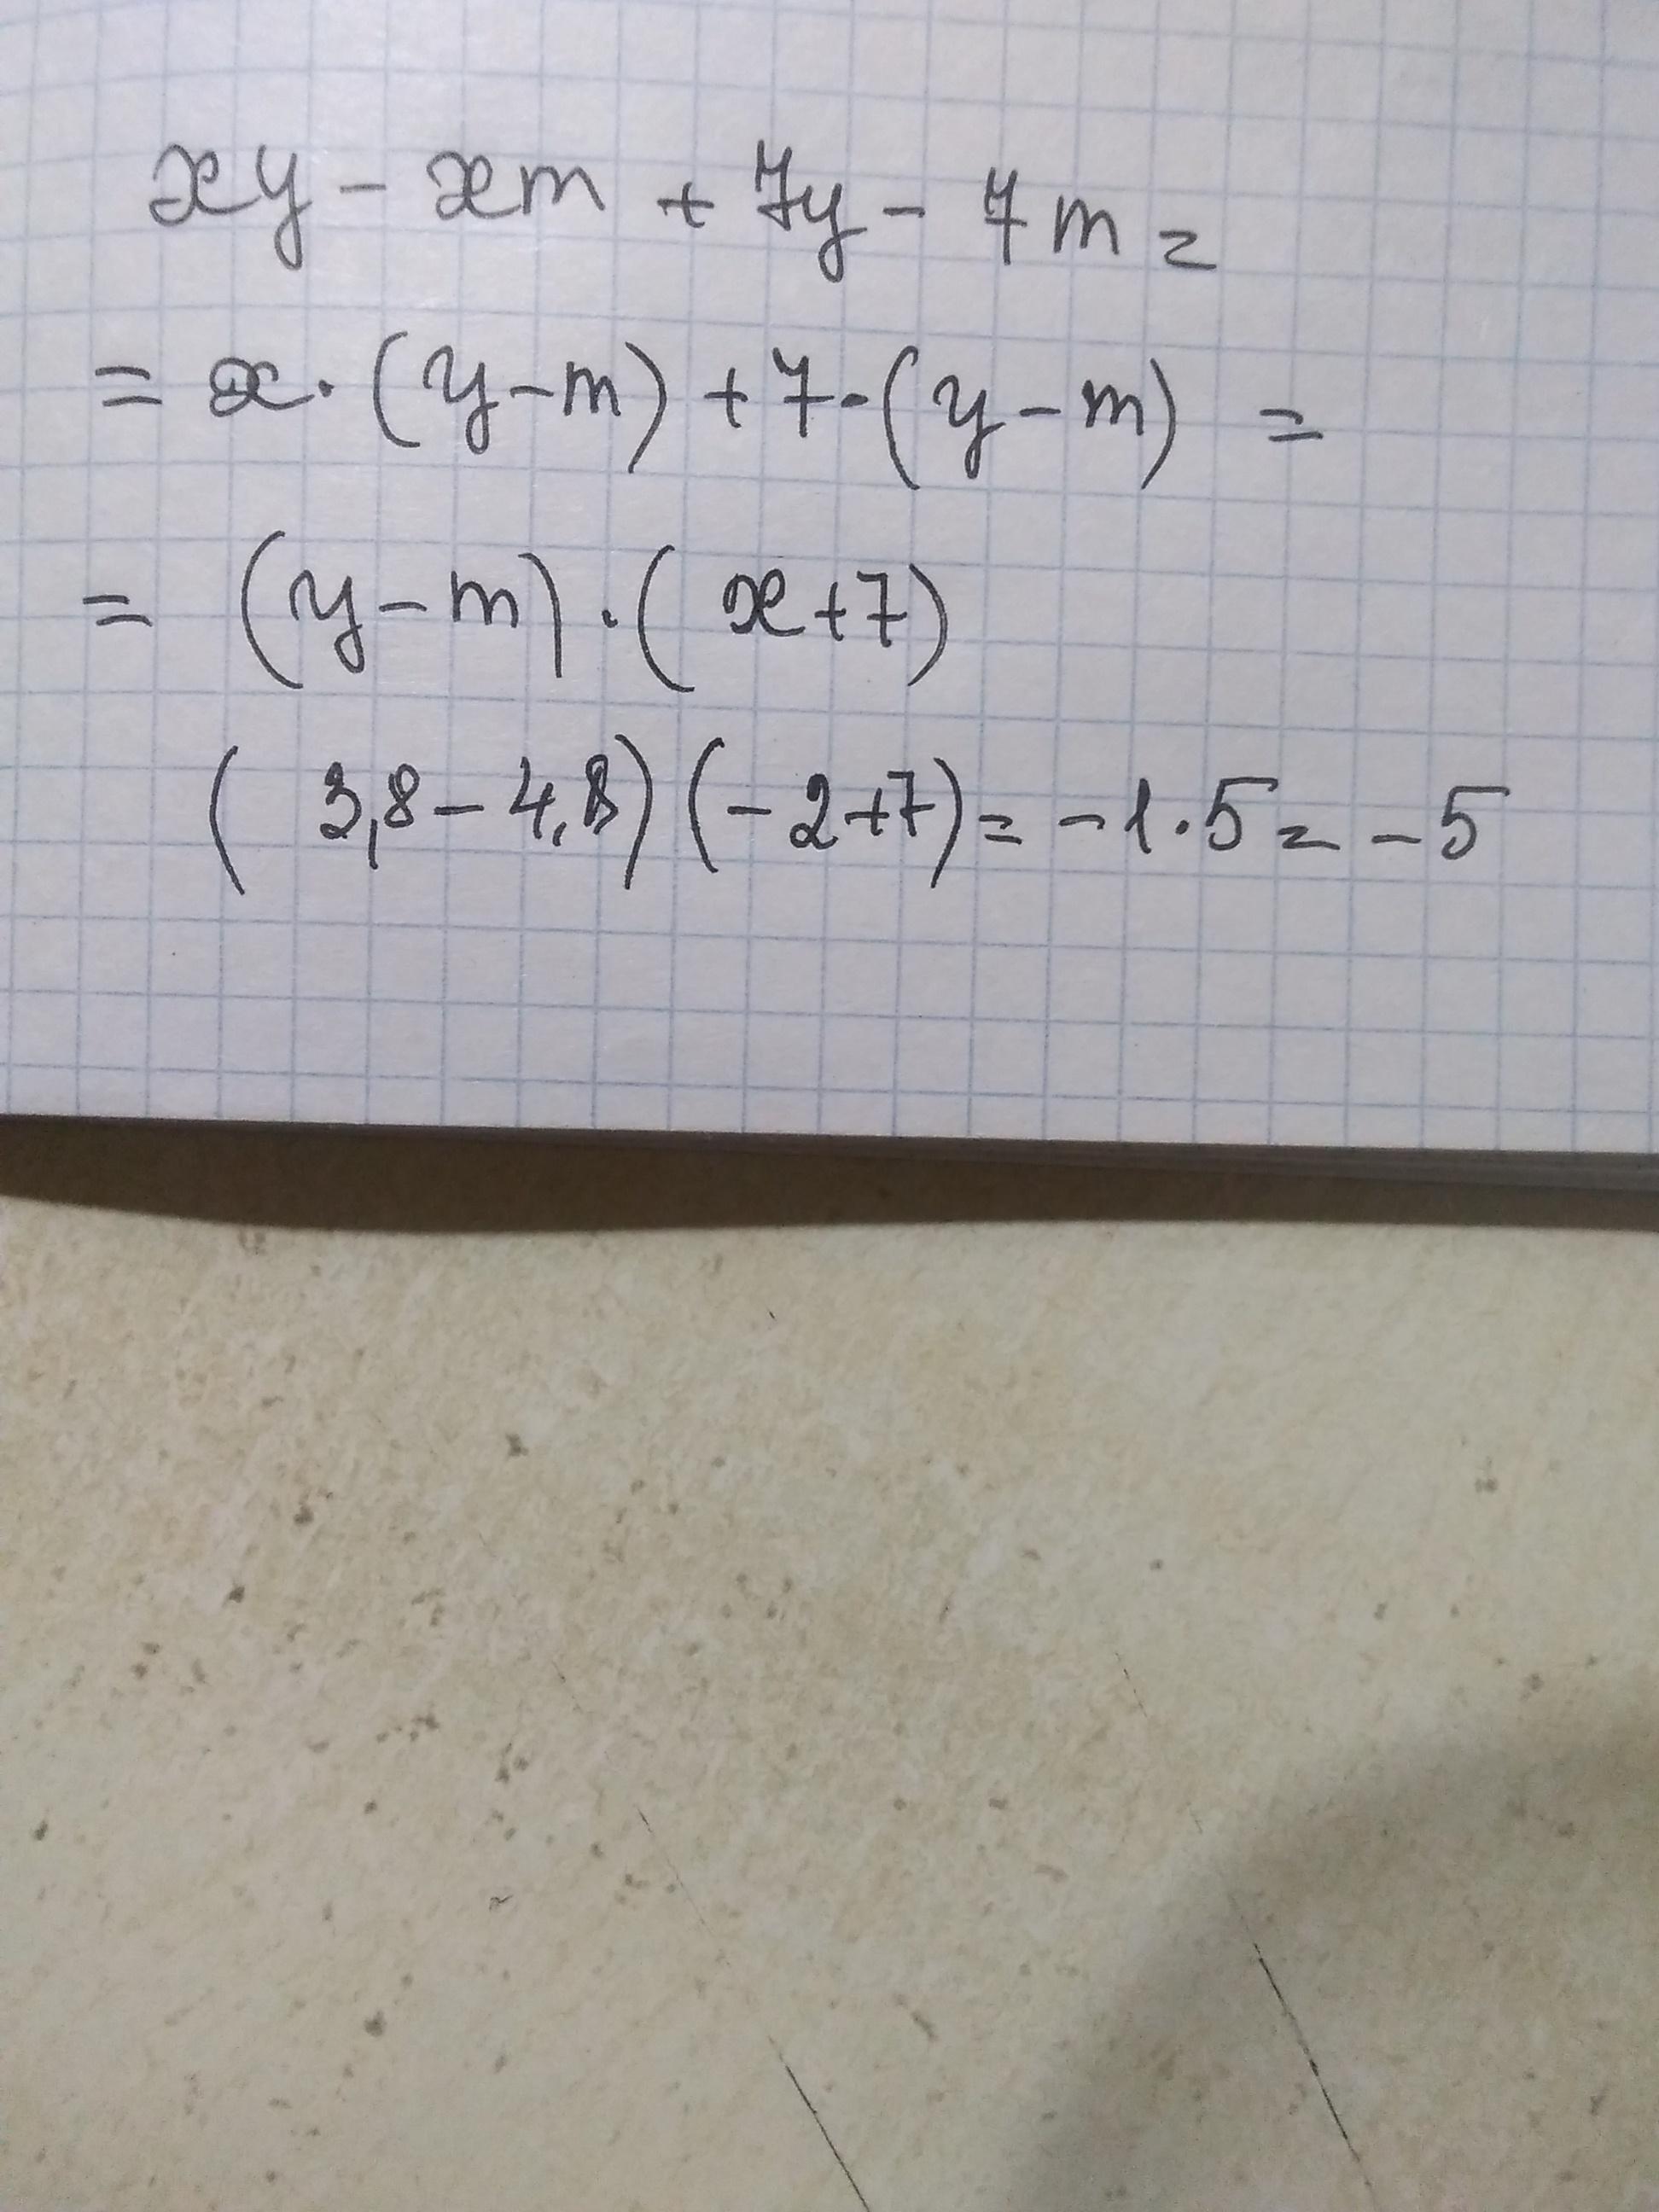 xy - xm + 7y - 7m =
= x · (y - m) + 7 · (y - m) =
= (y - m) · (x + 7)
(3,8 - 4,8) (- 2 + 7) = - 1 · 5 = - 5